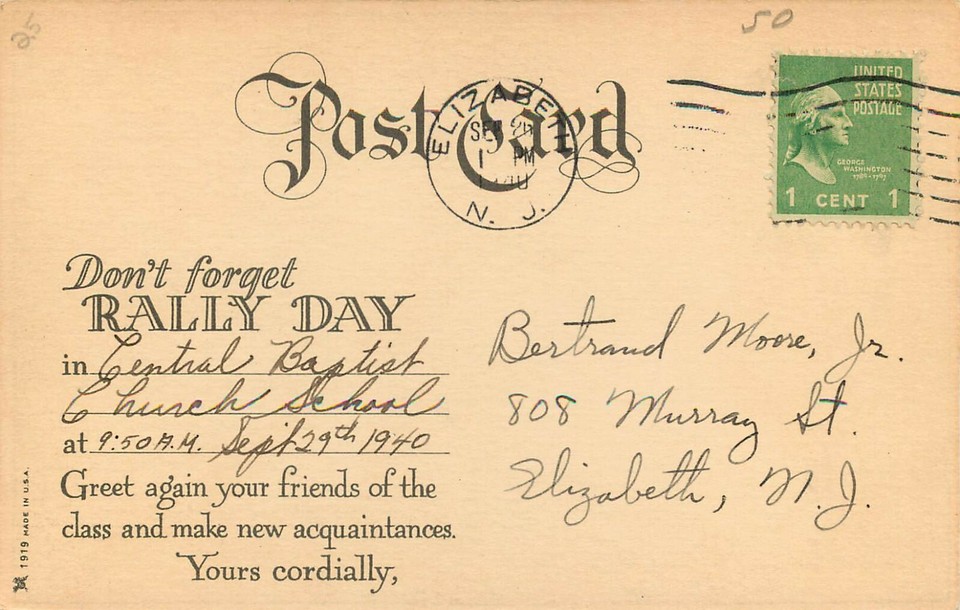 25
50
Post Card
ELIZABETH
SEP
PM
N. J.
UNITED
STATES
POSTAGE
GEORGE
WASHINGTON
1789-1797
1 CENT 1
Don't forget
RALLY DAY
in Central Baptist
Church School
at 9:50 A.M. Sept 29th 1940
Greet again your friends of the
class and make new acquaintances.
Yours cordially,
Bertrand Moore, Jr.
808 Murray St.
Elizabeth, N.J.
1919 MADE IN U.S.A.